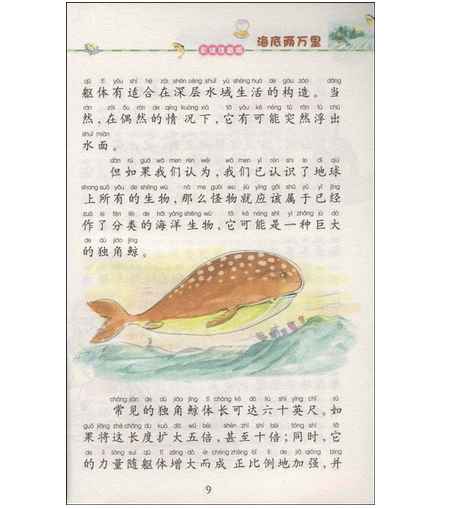 海底两万里
彩绘注音版
qū tǐ yǒu shì hé zài shēn céng shuǐ yù shēng huó de gòu zào dāng
躯体有适合在深层水域生活的构造。当
rán zài ǒu rán de qíng kuàng xià tā yǒu kě néng tū rán fú chū
然,在偶然的情况下,它有可能突然浮出
shuǐ miàn
水面。
dàn rú guǒ wǒ men rèn wéi wǒ men yǐ rèn shi le dì qiú
但如果我们认为,我们已认识了地球
shang suǒ yǒu de shēng wù nà me guài wu jiù yīng gāi shǔ yú yǐ jīng
上所有的生物,那么怪物就应该属于已经
zuò le fēn lèi de hǎi yáng shēng wù tā kě néng shì yì zhǒng jù dà
作了分类的海洋生物,它可能是一种巨大
de dú jiǎo jīng
的独角鲸。
cháng jiàn de dú jiǎo jīng tǐ cháng kě dá liù shí yīng chǐ rú
常见的独角鲸体长可达六十英尺。如
guǒ jiāng zhè cháng dù kuò dà wǔ bèi shèn zhì shí bèi tóng shí tā
果将这长度扩大五倍,甚至十倍;同时,它
de lì liàng suí qū tǐ zēng dà ér chéng zhèng bǐ lì de jiā qiáng bìng
的力量随躯体增大而成正比例地加强,并
9